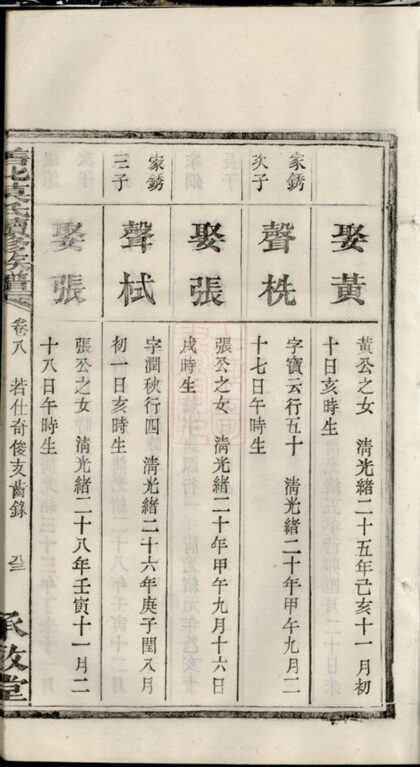 娶黃
黃公之女　淸光緒二十五年己亥十一月初
十日亥時生
家銹
次子
聲㭠
字寶云行五十　淸光緒二十年甲午九月二
十七日午時生
娶張
張公之女　淸光緒二十年甲午九月十六日
戌時生
家銹
三子
聲栻
字潤秋行四　淸光緒二十六年庚子閏八月
初一日亥時生
娶張
張公之女　淸光緒二十八年壬寅十一月二
十八日午時生
氏續修宗譜
卷八　若仕奇俊支齒錄
承敘堂